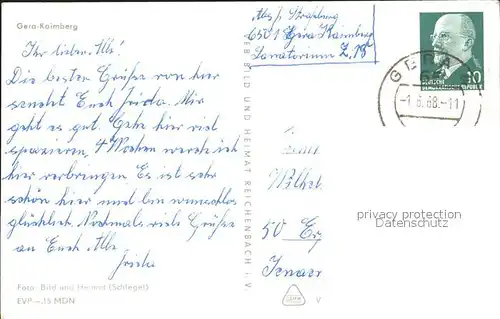 Gera-Kaimberg
Ihr lieben Alle!
Die besten Grüße von hier
sendet Euch Frieda. Mir
geht es gut. Gehe hier viel
spazieren, 4 Wochen werde ich
hier verbringen Es ist sehr
schön hier und bin wunschlos
glücklich. Nochmals viele Grüße
an Euch Alle.
Frieda
Foto: Bild und Heimat (Schlegel)
EVP –.15 MDN
VEB BILD UND HEIMAT REICHENBACH i. V.
Straßburg
6501 Gera Kaimberg
Sanatorium Z. 18
GERA
-1.6.68.-11
10
DEUTSCHE
DEMOKRATISCHE REPUBLIK
Wilhel
50 Er
privacy protection
Datenschutz
V